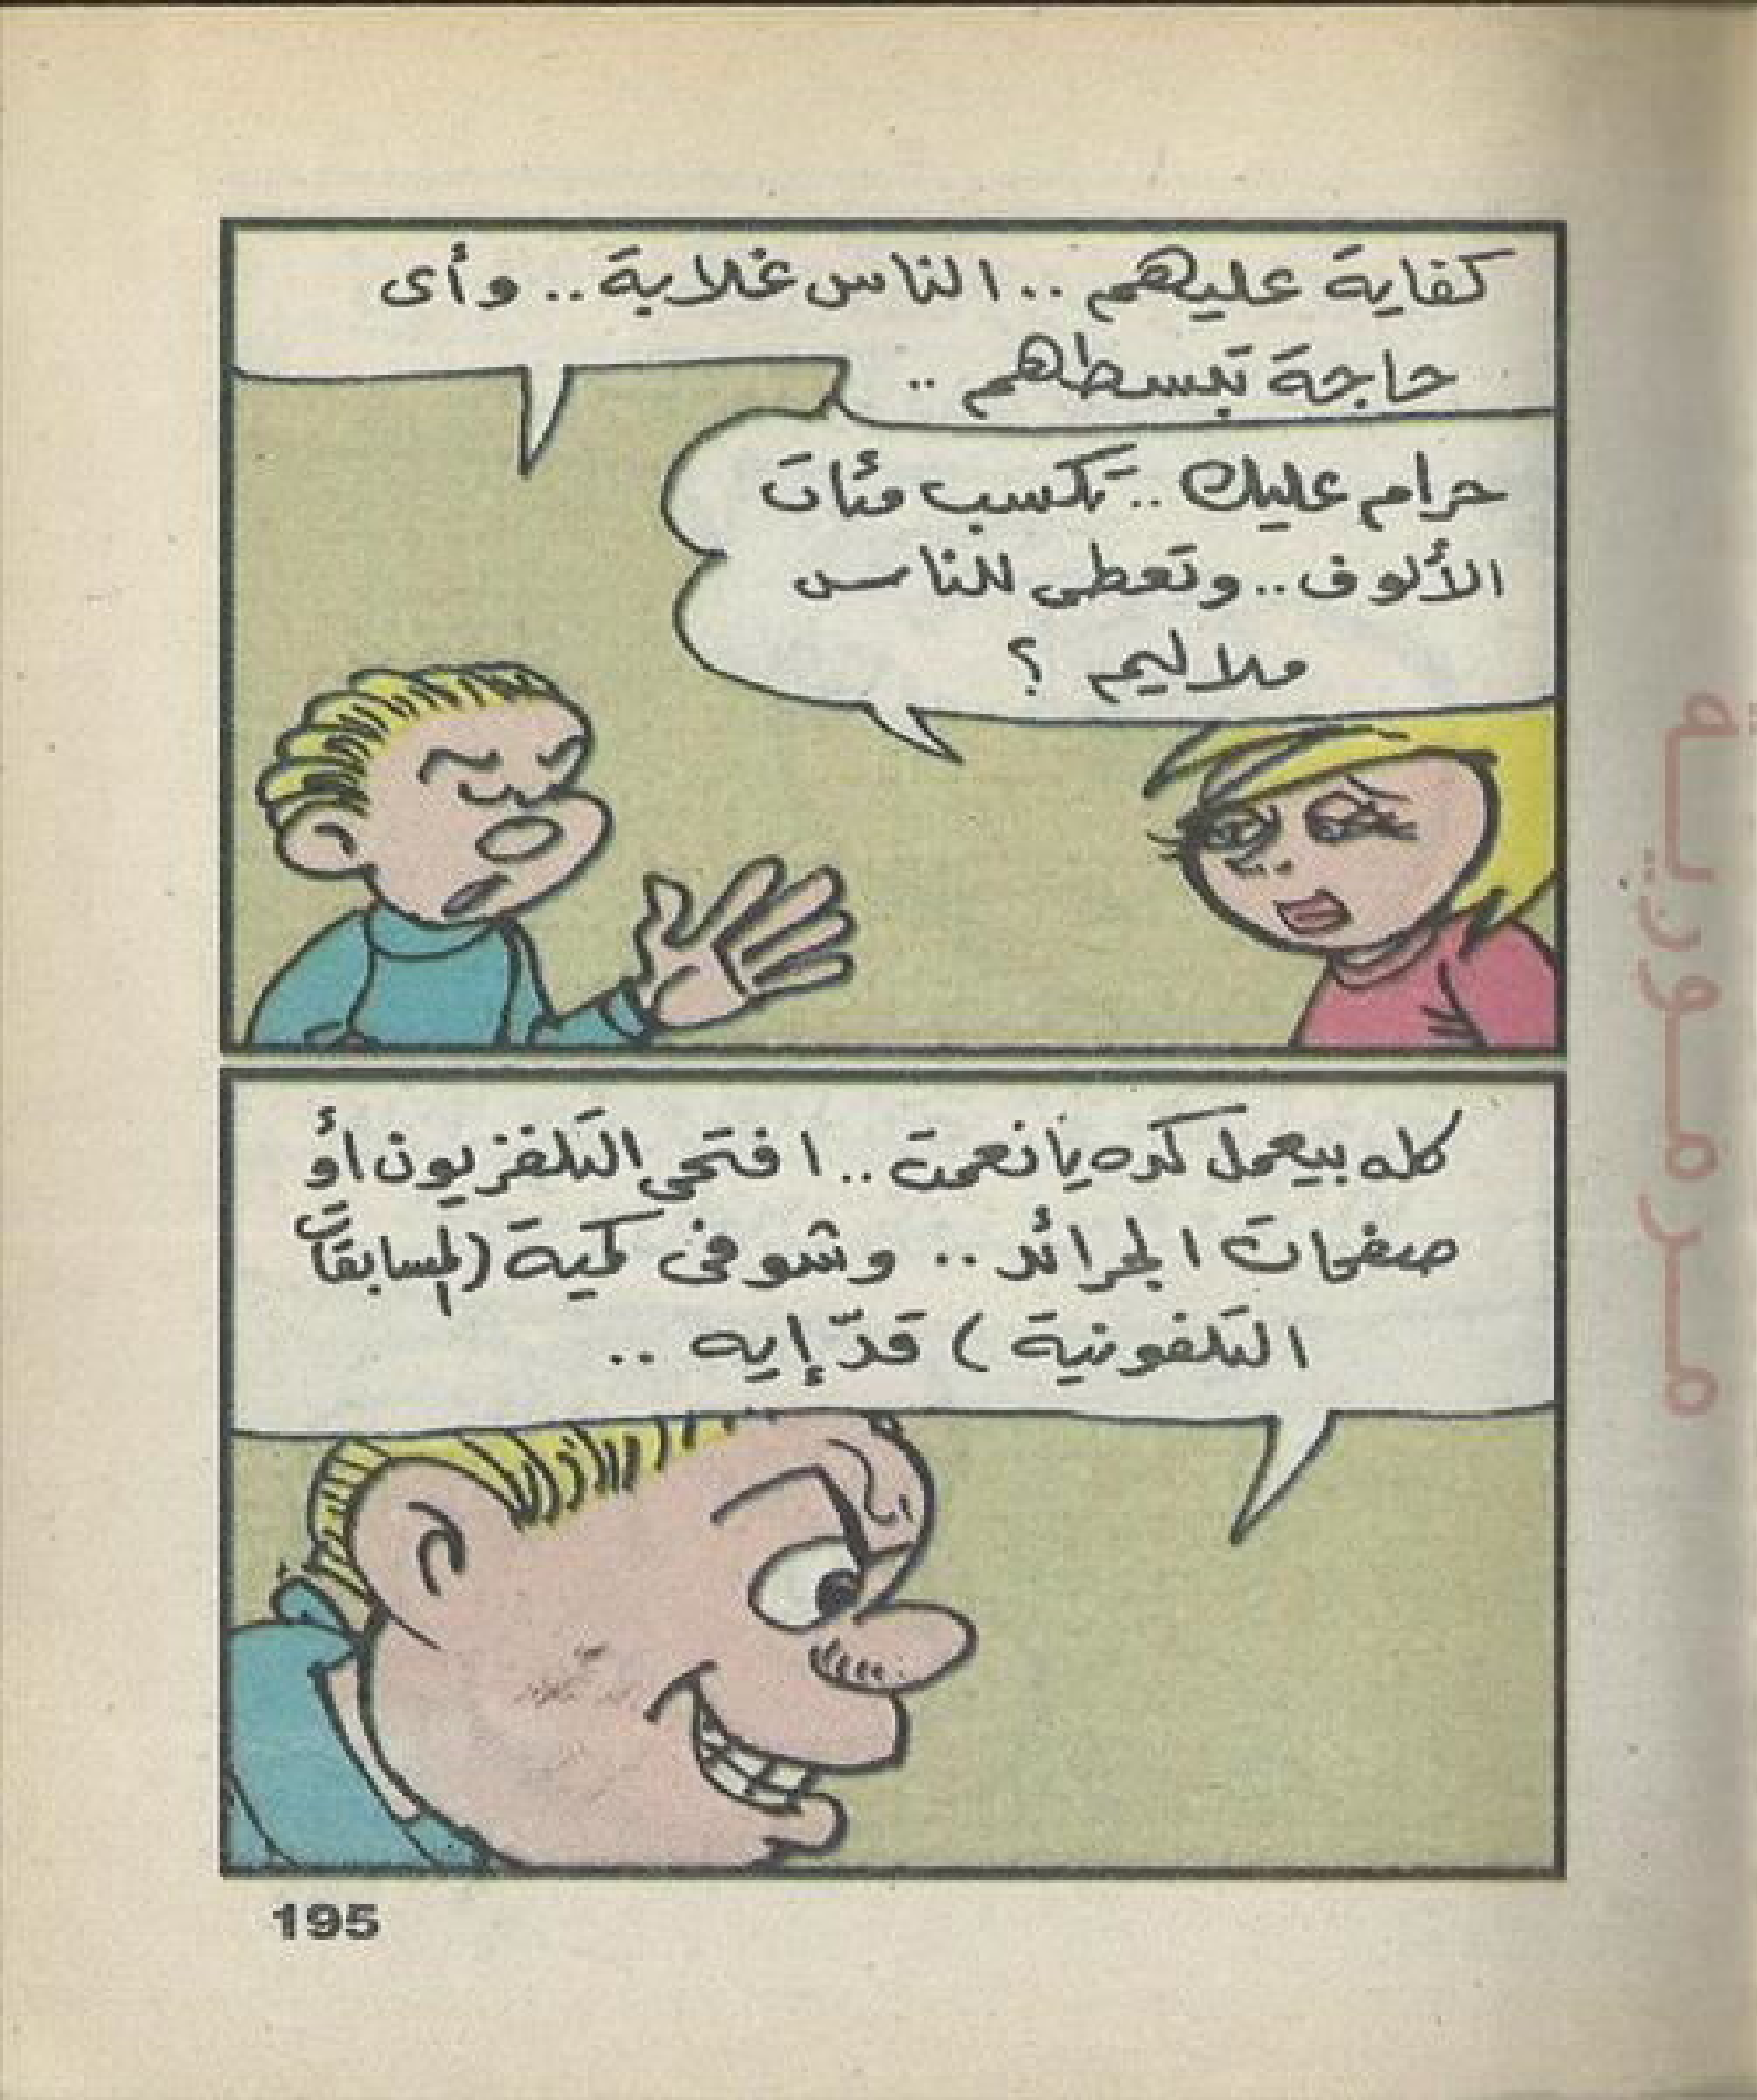 كفاية عليهم .. الناس غلابة .. وأى
حاجة تبسطهم ..
حرام عليك .. تكسب مئات
الألوف .. وتعطى للناس
ملاليم ؟
كله بيعمل كده يا نعمت .. افتحى التلفزيون أو
صفحات الجرائد .. وشوفى كمية (المسابقات
التلفونية) قدّ إيه ..
195